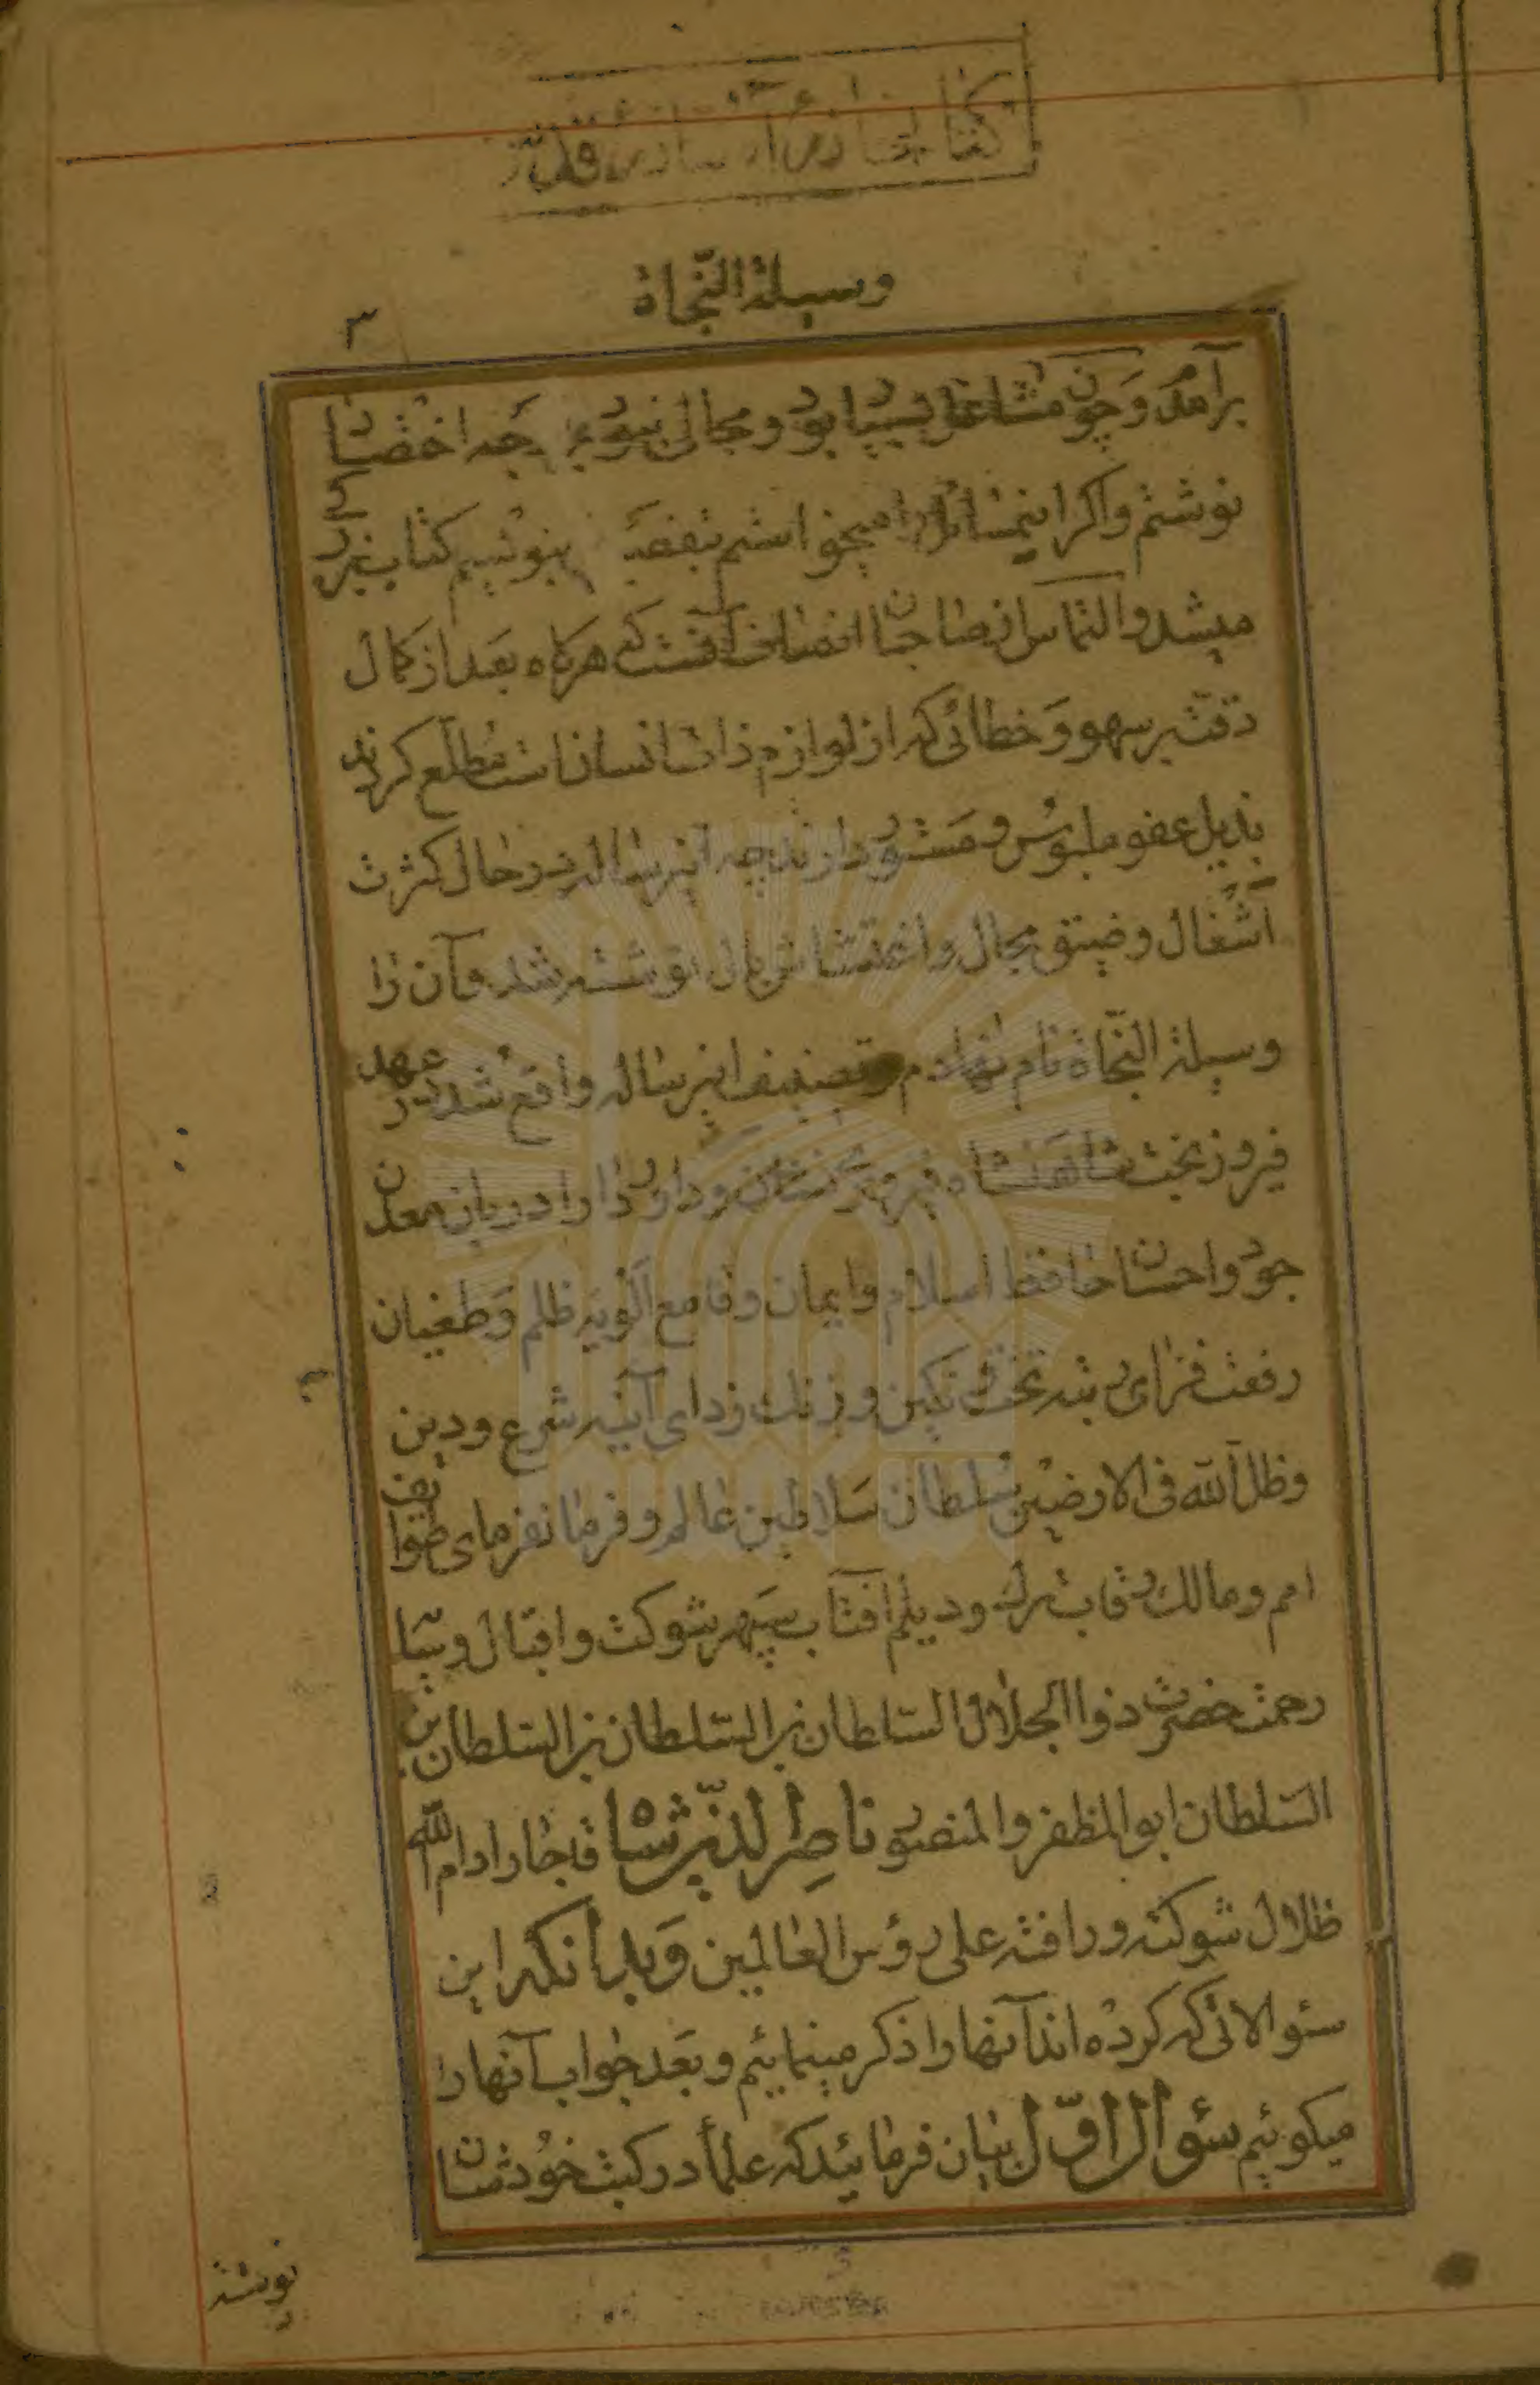 کتابخانه آستان قدس
وسیلة النّجاة
۳
برآمدم و چون مشاغل بسیار بود و مجالی نبود بر وجه اختصار
نوشتم و اکر اینمسائل را میخواستم بنویسیم کتاب بزرکی
میشد و التماس از صاحبان انصاف آنست که هرکاه بعد از کمال
دقّت بر سهو و خطائی که از لوازم ذات انسان است مطّلع کردند
بذیل عفو ملبوس و مستور دارند چه اینرساله در حال کثرت
آشغال و ضیق مجال و اغتشاش بال نوشته شد و آن را
وسیلة النّجاة نام نهادم و تصنیف اینرساله واقع شد در عهد
فیروز بخت شاهنشاه و داور دارا دربان معدن
جود و احسان حافظ اسلام و ایمان و قامع الویه ظلم و طغیان
رفعت فزای رتبه تخت و نکین و زنك زدای آینه شرع و دین
و ظل اللّه فی الارضین سلطان سلاطین عالم و فرمانفرمای طوایف
امم و مالك رقاب ترك و دیلم آفتاب سپهر شوکت و اقبال و سایه
رحمت حضرت ذوالجلال السلطان بن السّلطان بن السلطان بن
السّلطان ابو المظفر و المنصور ناصِر الدّین شاه قاجار ادام اللّه
ظلال شوکته و رافته علی رؤس العالمین و بدانکه این
سئوالاتی که کرده اند آنها را ذکر مینمائیم و بعد جواب آنها را
میکوئیم سئوال اوّل بیان فرمائید که علمأ در کتب خودشان
نوشته